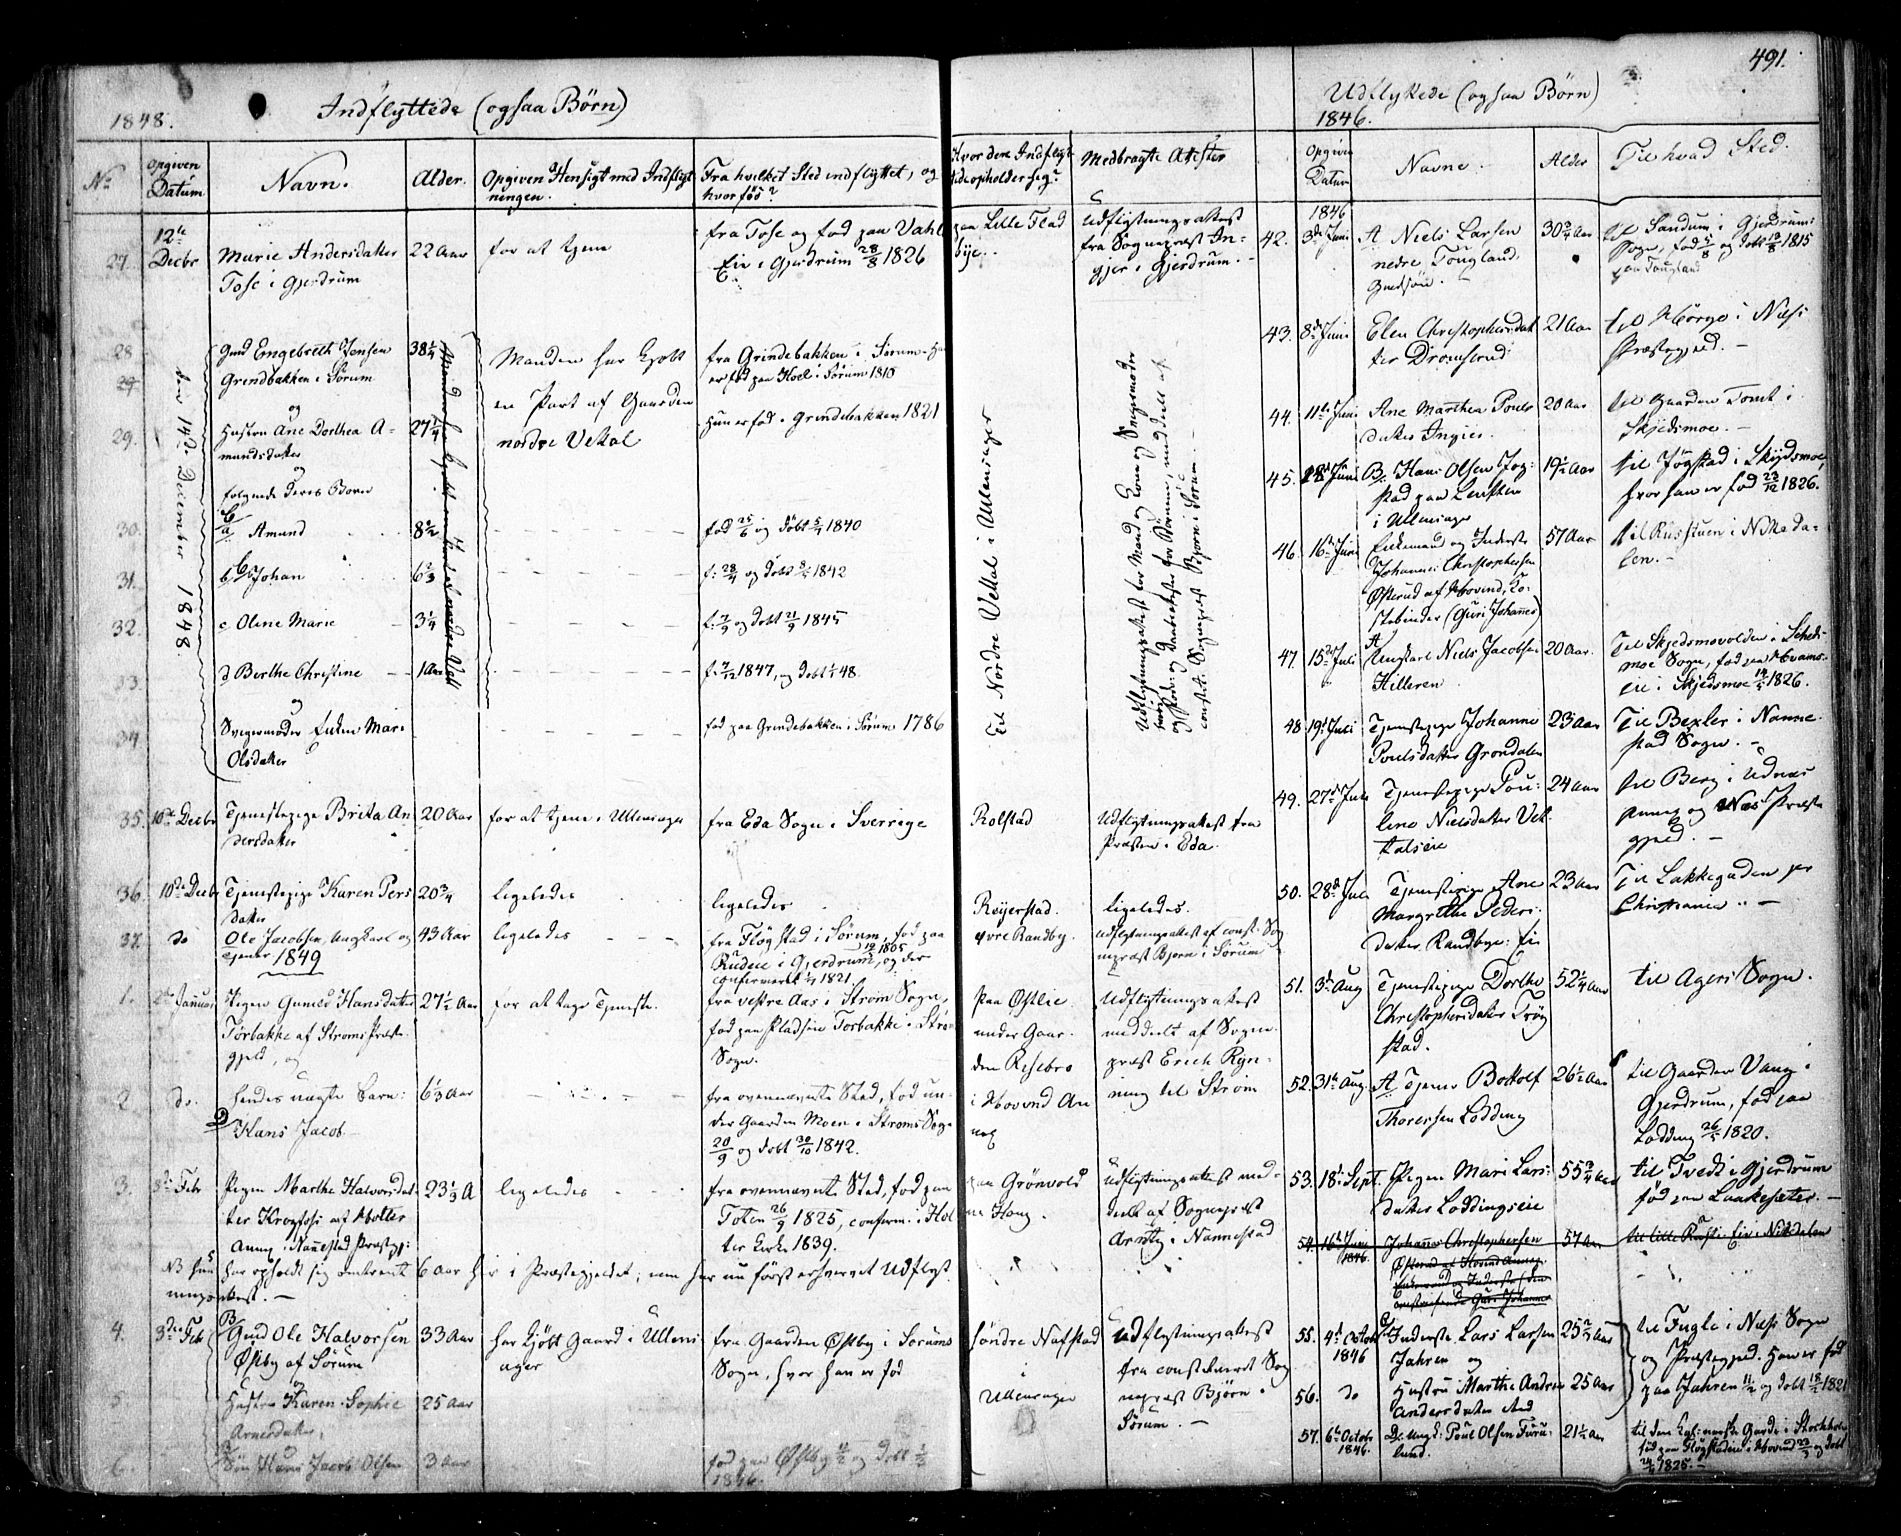 491.
1848.
Indflyttede (ogsaa Børn)
No
Opgiven Datum
Navn.
Alder.
Opgiven Hensigt med Indflytningen.
Fra hvilket Sted indflyttet, og hvor fød?
Hvor den Indflyttede opholder sig?
Medbragte Atester
27.
12te Decbr
Marie Andersdatter
Tose i Gjerdrum
22 Aar
for at tjene
fra Tose og fød paa Vahl
Eie i Gjerdrum 28/8 1826
paa Lille Flad
bye.
Udflytningsattest
fra Sogneprest In-
gier i Gjerdrum.
den 14de December 1848.
28
Gmd Engebreth Jensen
Grendbakken i Sørum
38 1/4
Manden har kjøbt
en Part af Gaarden
nordre Vetal
fra Grindebakken i Sørum Han
er fød paa Hoel i Sørum 1810
29.
og
Hustru Ane Dorthea A-
mundsdatter
27 1/4
Hun er fød i Grindebakken 1821
og
følgende deres Børn
30.
a Amund
fød 25/6 og døbt 5/7 1840
31.
b Johan
6 2/3
f: 28/4 og døbt 8/5 1842
32.
c Oline Marie
3 1/4
f: 7/9 og døbt 21/9 1845
33.
d Berthe Christine
1 Aar
f. 7/12 1847, og døbt 1/1 48.
34.
og
Svigermoder Enken Mari
Olsdatter
fød paa Grindebakken i Sørum 1786
Til Nordre Vettal i Ullensager
35.
10de Decbr
Tjenestepige Brita An
dersdatter
20 Aar
for at tjene i Ullensager
fra Eda Sogn i Sverrige
Rolstad
Udflytningsattest fra
Præsten i Eda.
36.
10de Decbr
Tjenestepige Karen Pers
datter
20 3/4
ligeledes
ligeledes
Røyerstad.
ligeledes.
37.
do
Ole Jacobsen, Ungkarl og
Tjener
43 Aar
ligeledes
fra Fløgstad i Sørum, fød paa
Rudeie i Gjerdrum, 19/10 1805 og der
confirmeret 1821.
øvre Randby.
Udflytningsattest af const. Sog
neprest Bjørn i Sørum
1849
1.
2den Januar
Pigen Gunild Hansdatter
Torbakke af Strøms Præste-
gjeld, og
27 1/2 Aar
for at tage Tjeneste.
fra vestre Aas i Strøm Sogn,
fød paa Pladsen Torbakke i Strøm
Sogn.
Paa Østlie
under Gaar-
den Risebro
i Hovind An
nex
Udflytningsattest
meddeelt af Sogne-
prest Erich Ryn-
ning til Strøm
2.
do.
hendes uægte Barn:
Hans Jacob
6 1/3 Aar
fra ovennævnte Sted, fød un-
der Gaarden Moen i Strøms Sogn
20/9 og døbt 30/10 1842.
3.
3de Febr
Pigen Marthe Halvorsdat-
ter Krogfoss af Holter
Annex i Nannestad Præstegj:
23 1/3 A
ligeledes
fra ovennævnte Sted, fød paa
Toten 26/9 1825, confirm. i Hol
ter Kirke 1839.
paa Grønvold
Udflytningsattest med-
deelt af Sogneprest
Arntz i Nannestad
NB hun har opholdt sig omtrent 6 Aar her i Præstegjeldet; men har nu først erhvervet Udflyt-
ningsattest.
4.
3de Febr
Gmd Ole Halvorsen
Østby af Sørum
33 Aar
har kjøbt Gaard i Ullens
ager
fra Gaarden Østby i Sørums
Sogn, hvor han er fød
søndre Nafstad
i
Ullensager
Udflytningsattest
fra constitueret Sog
neprest Bjørn i
Sørum.
5.
og
Hustru Karen Sophie
Arnesdatter,
25 Aar
6.
Søn Hans Jacob Olsen
3 Aar
fød paa Østby og døbt
1846.
Udflyttede (ogsaa Børn)
1846.
Opgiven Datum
Navne.
Alder
Til hvad Sted.
1846
42.
3de Juni
Niels Larsen
nedre Tougland
Gmdsøn.
30 3/4 Aar
til Sandum i Gjerdrum
Sogn, fød 5/8 og døbt 13/8 1815
paa Tougland
43.
8de Juni
Elen Christophersdat
ter Dromsrud
21 Aar
til Hørgo i Næss
Præstegjeld.
44.
11te Juni
Ane Marthea Pouls
datter Ingies.
20 Aar
til Gaarden Tomt i
Skjedsmoe.
45.
Hans Olsen Jog-
stad paa Lensten
i Ullensager
19 1/2 Aar
til Jøgstad i Skjedsmoe,
hvor han er fød 23/12 1826.
46.
16de Juni
Enkemand og Inderste
Johannes Christophersen
Østerud af Hovind,
(Guri Johannes)
57 Aar
til Russtuen i Nittedal-
len.
47.
15de Juli
Ungkarl Niels Jacobsen
Hilleren
20 Aar.
Til Skjedsmovolden i Schids-
moe Sogn, fød paa Hvams-
eie i Skjedsmoe 14/5 1826.
48.
19de Juli
Tjenestepige Johanne
Poulsdatter Grøndalen
23 Aar
Til Bexler i Nanne-
stad Sogn.
49.
27de Juli
Tjenestepige Pou-
line Nielsdatter Vet-
talseie
24 Aar
til Berg i Udnæs
Annex og Næs Præste
gjeld.
50.
28de Juli
Tjenestepige Ane
Margrethe Peders-
datter Randbye: Eie
23 Aar
Til Lakkegaden per
Christiania
51.
3de Aug
Tjenestepige Dorthe
Christophersdatter Trøg
stad.
52 1/4 Aar
til Agers Sogn.
52.
31te Aug.
Tjener Bottolf
Thoresen Lødding
26 1/2 Aar
til Gaarden Vang i
Gjerdrum, fød paa
Lødding 26/5 1820.
53.
18de Sept.
Pigen Mari Lars-
datter Løddingseie
55 Aar
til Tvedt i Gjerdrum
fød paa Laakesæter.
54.
16de Juni 1846.
Johannes Christophersen
Østerud af Hovind Annex
57 Aar
55.
4de Octobr 1846
Inderste Lars Larsen
Jahren og
25 Aar
til Fugle i Næss Sogn
og Præstegjeld. Han er fød
paa Jahren 11/2 og døbt 18/2 1821
56.
do
Hustru Marthe Andrea
Andersdatter
25 Aar
57.
6te Octobr 1846.
Ungk: Poul Olsen Furu-
lund.
21 1/2 Aar
til den Kgl: norske Garde i Stockholm
fød paa Fløgstadeie i Hovind og døbt
1825.